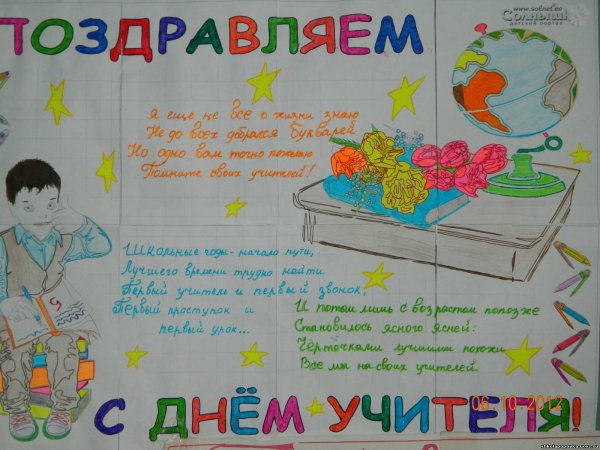 ПОЗДРАВЛЯЕМ
www.solnet.ee
Солнышко
детский портал
Я еще не все о жизни знаю
Не до всех добрался Букварей
Но одно вам точно пожелаю
Помните своих учителей!
Школьные годы - начало пути,
Лучшего времени трудно найти
Первый учитель и первый звонок,
Первый проступок и
первый урок...
И потом лишь с возрастом попозже
Становилось ясного ясней:
Чёрточками лучшими похожи
Все мы на своих учителей
С ДНЁМ УЧИТЕЛЯ!
06.10.2012